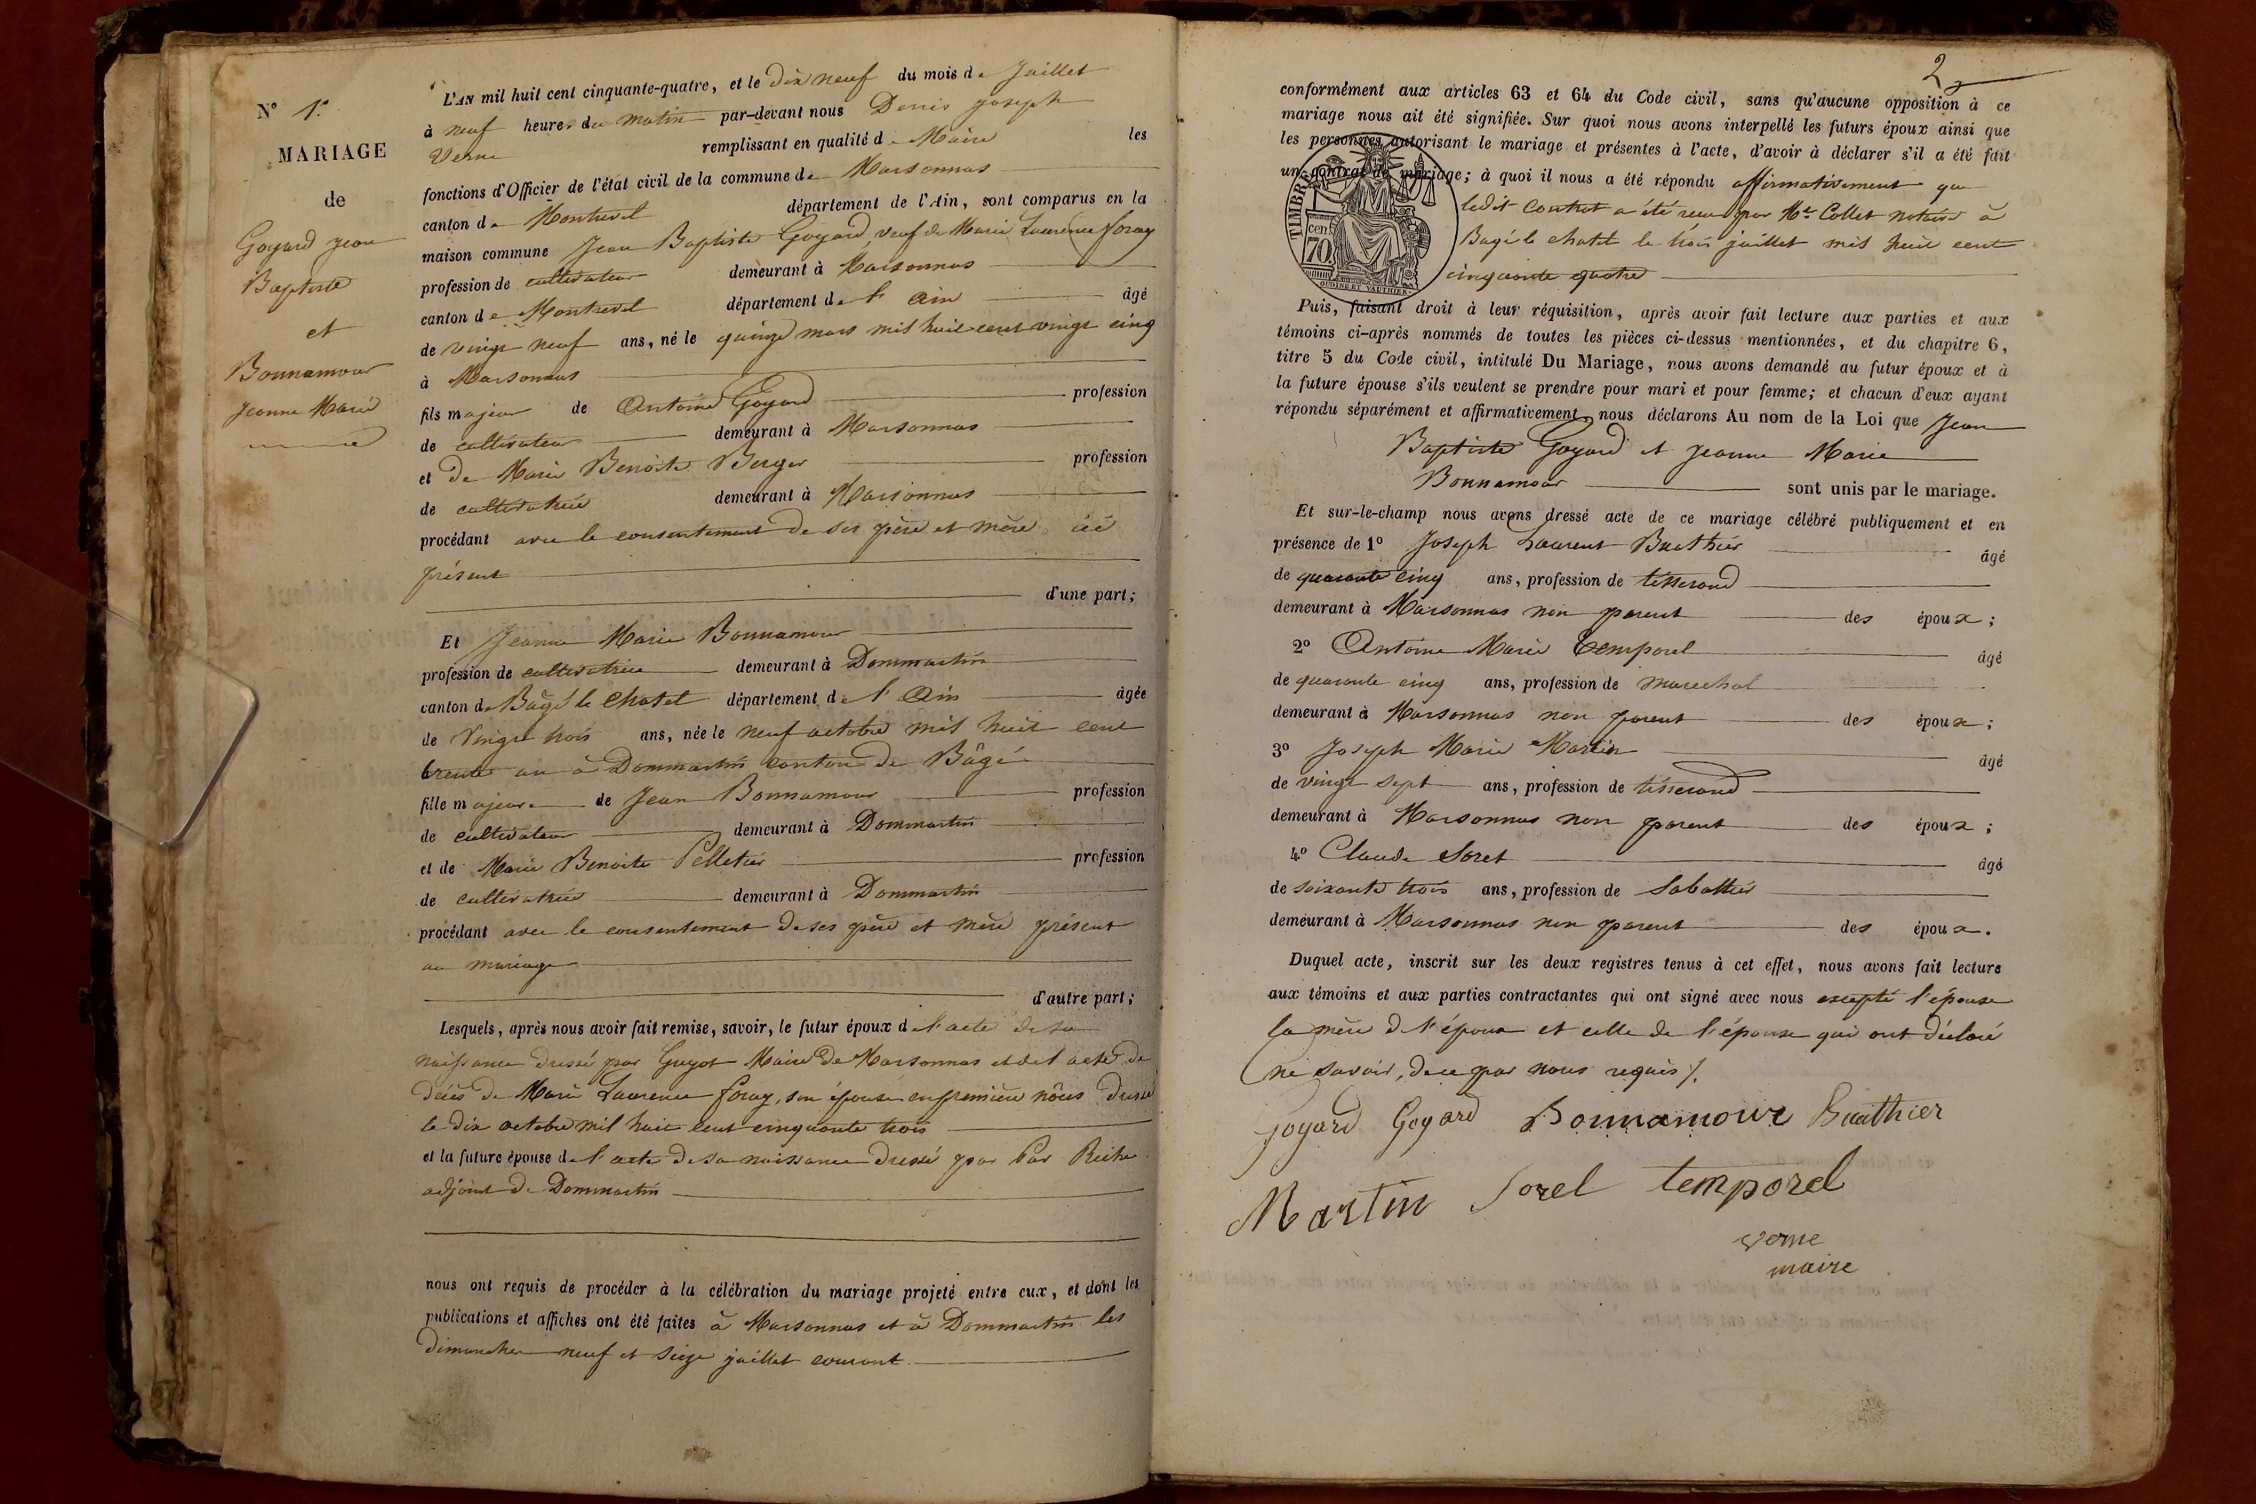 N° 1.
MARIAGE
de
Goyard Jean
Baptiste
et
Bonnamour
Jeanne Marie
L'AN mil huit cent cinquante-quatre, et le dix neuf du mois de Juillet
à neuf heures du matin par-devant nous Denis Joseph
Verne remplissant en qualité de Maire les
fonctions d'Officier de l'état civil de la commune de Marsonnas
canton de Montrevel département de l'Ain, sont comparus en la
maison commune Jean Baptiste Goyard, veuf de Marie Laurence foray
profession de cultivateur demeurant à Marsonnas
canton de Montrevel département de l'Ain âgé
de vingt neuf ans, né le quinze mars mil huit cent vingt cinq
à Marsonnas
fils majeur de Antoine Goyard profession
de cultivateur demeurant à Marsonnas
et de Marie Benoite Berger profession
de cultivatrice demeurant à Marsonnas
procédant avec le consentement de ses père et mère ici
présent
d'une part;
Et Jeanne Marie Bonnamour
profession de cultivatrice demeurant à Dommartin
canton de Bâgé le Chatel département de l'Ain âgée
de vingt trois ans, née le neuf octobre mil huit cent
trente au à Dommartin canton de Bâgé
fille majeure de Jean Bonnamour profession
de cultivateur demeurant à Dommartin
et de Marie Benoite Pelletier profession
de cultivatrice demeurant à Dommartin
procédant avec le consentement de ses père et mère présent
au mariage
d'autre part;
Lesquels, après nous avoir fait remise, savoir, le futur époux de l'acte de sa
naissance dressé par Guyot Maire de Marsonnas et de l'acte de
décès de Marie Laurence foray, son épouse en première nôces dressé
le dix octobre mil huit cent cinquante trois
et la future épouse de l'acte de sa naissance dressé par
adjoint de Dommartin
nous ont requis de procéder à la célébration du mariage projeté entre eux, et dont les
publications et affiches ont été faites à Marsonnas et à Dommartin les
dimanches neuf et seize juillet courant
2
conformément aux articles 63 et 64 du Code civil, sans qu'aucune opposition à ce
mariage nous ait été signifiée. Sur quoi nous avons interpellé les futurs époux ainsi que
les personnes autorisant le mariage et présentes à l'acte, d'avoir à déclarer s'il a été fait
un contrat de mariage; à quoi il nous a été répondu affirmativement que
ledit contrat a été reçu par Me Collet notaire à
Bagé le chatel le trois juillet mil huit cent
cinquante quatre
TIMBRE
70 cen.
OUDINE ET VAUTHIER.
Puis, faisant droit à leur réquisition, après avoir fait lecture aux parties et aux
témoins ci-après nommés de toutes les pièces ci-dessus mentionnées, et du chapitre 6,
titre 5 du Code civil, intitulé Du Mariage, nous avons demandé au futur époux et à
la future épouse s'ils veulent se prendre pour mari et pour femme; et chacun d'eux ayant
répondu séparément et affirmativement, nous déclarons Au nom de la Loi que Jean
Baptiste Goyard et Jeanne Marie
Bonnamour sont unis par le mariage.
Et sur-le-champ nous avons dressé acte de ce mariage célébré publiquement et en
présence de 1° Joseph Laurent Buathier âgé
de quarante cinq ans, profession de tisserand
demeurant à Marsonnas non parent des époux;
2° Antoine Marie Temporel âgé
de quarante cinq ans, profession de marechal
demeurant à Marsonnas non parent des époux;
3° Joseph Marie Martin âgé
de vingt sept ans, profession de tisserand
demeurant à Marsonnas non parent des époux;
4° Claude Soret âgé
de soixante trois ans, profession de Sabottier
demeurant à Marsonnas non parent des époux.
Duquel acte, inscrit sur les deux registres tenus à cet effet, nous avons fait lecture
aux témoins et aux parties contractantes qui ont signé avec nous excepté l'épouse
la mère de l'époux et celle de l'épouse qui ont déclaré
ne savoir, de ce par nous requis ./.
Goyard Goyard Bonnamour Buathier
Martin Sorel temporel
verne
maire